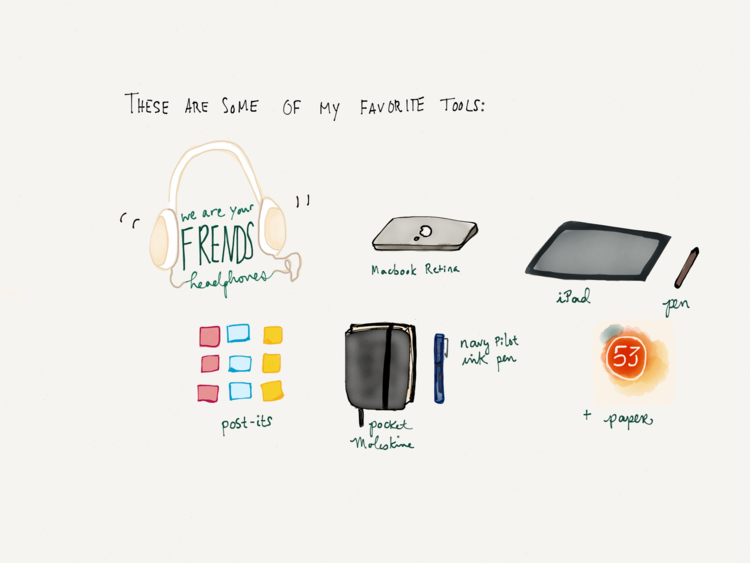 THESE ARE SOME OF MY FAVORITE TOOLS:
we are your
FRENDS
headphones
Macbook Retina
iPad
pen
post-its
pocket
Moleskine
navy Pilot
ink pen
53
+ paper